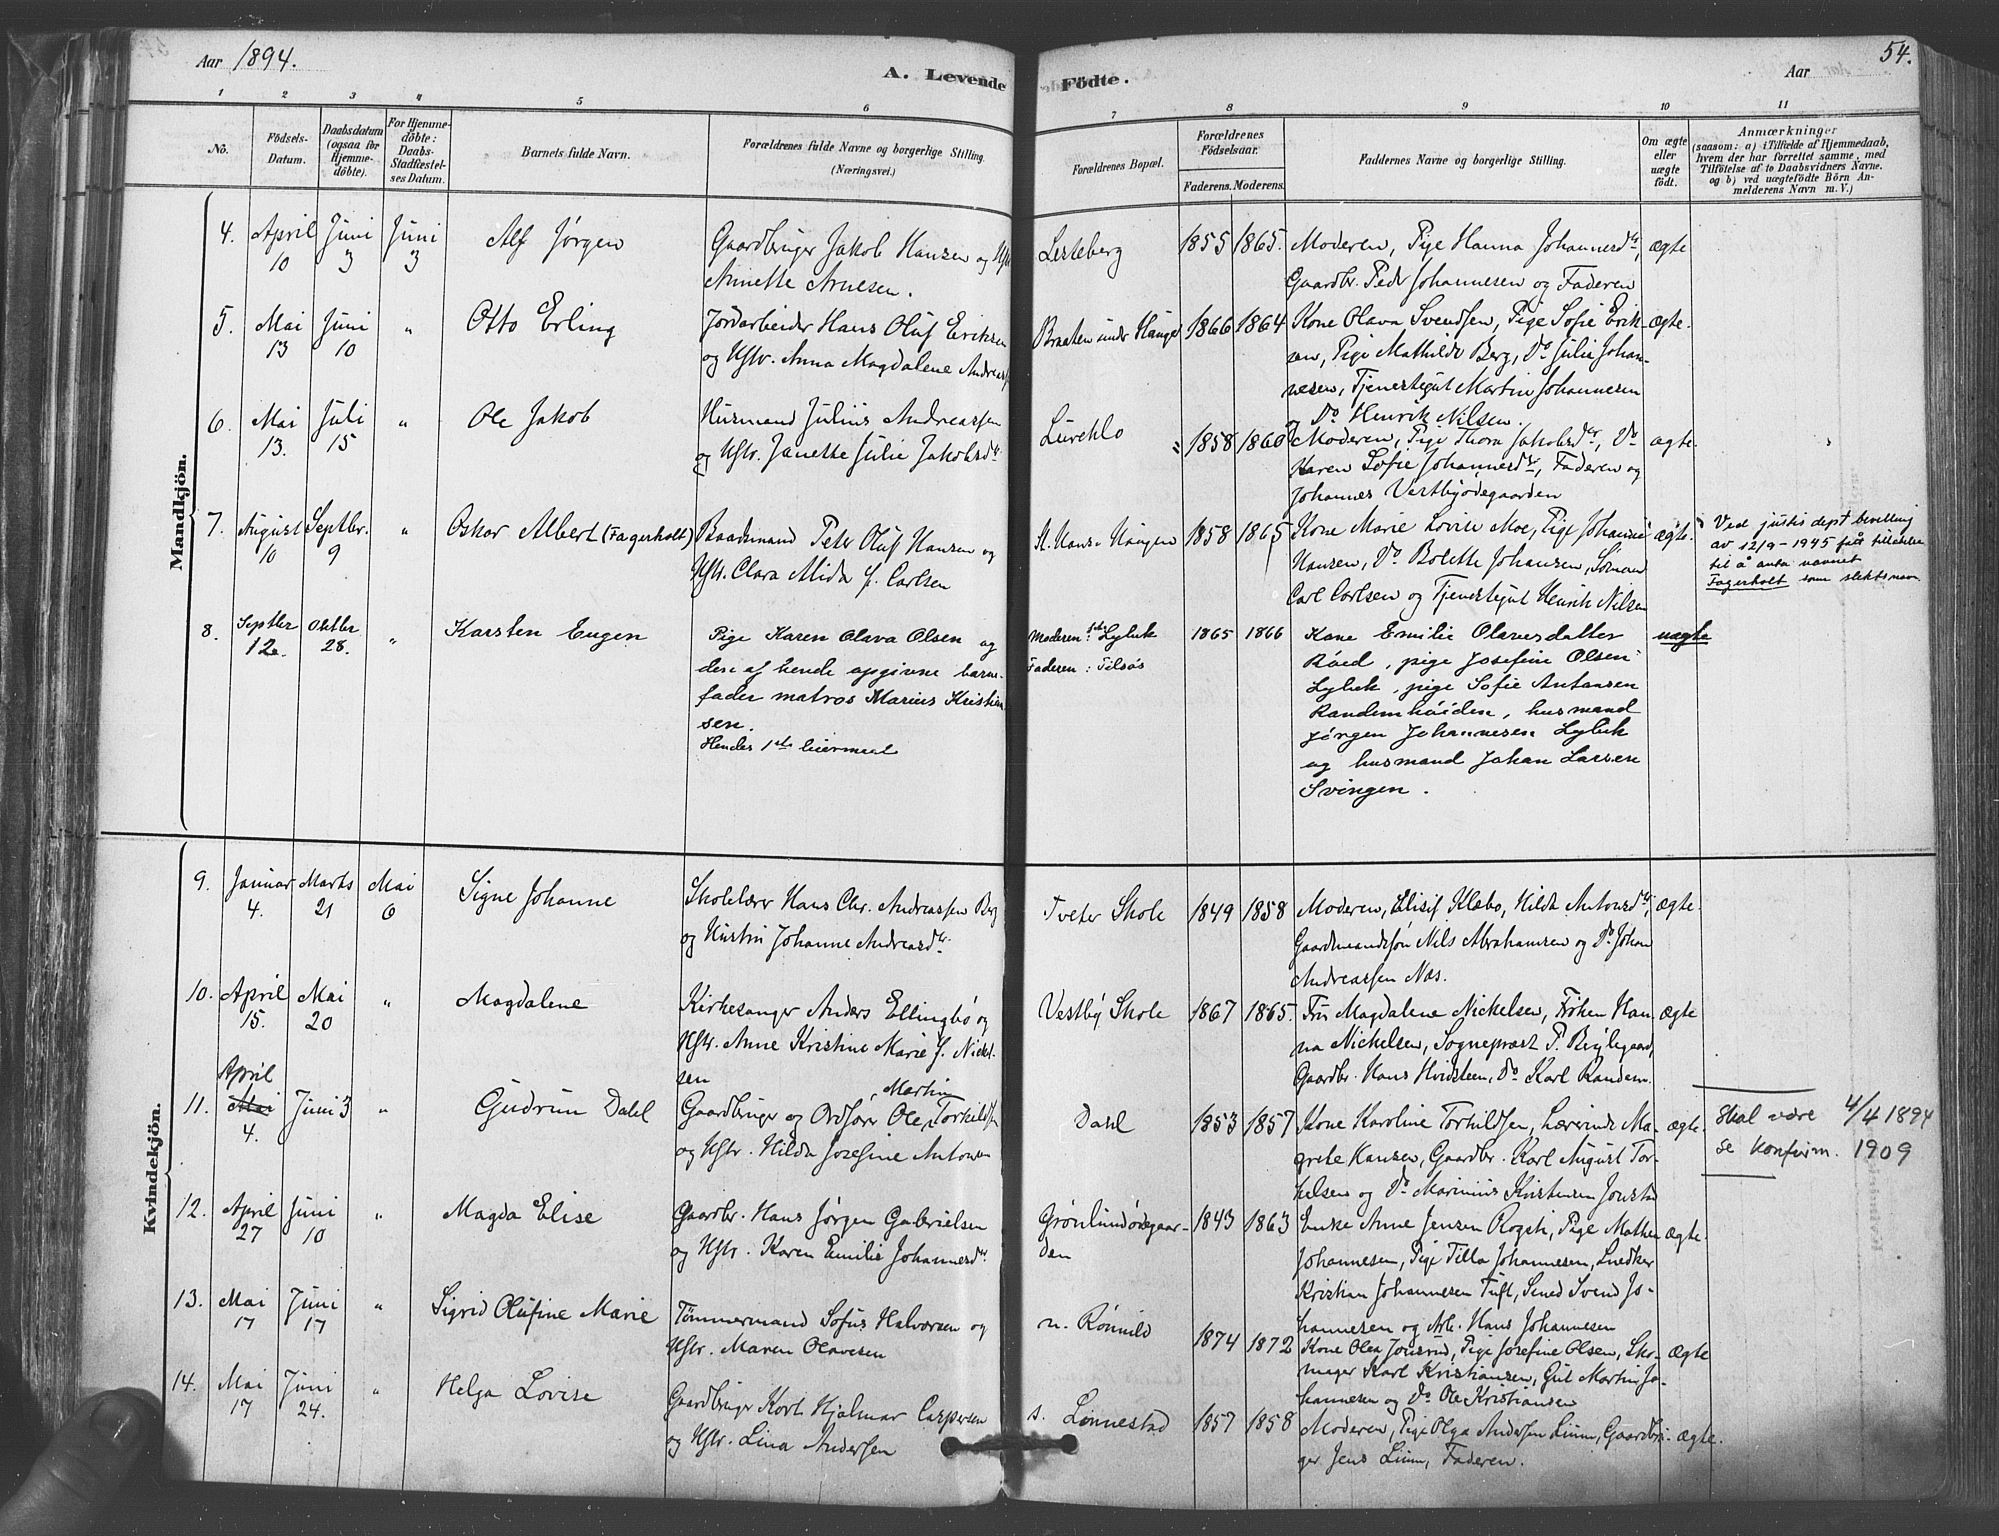 Aar 1894.
A. Levende
Födte.
Aar
54.
1 2 3 4 5 6 7 8 9 10 11
No.
Födsels-
Datum.
Daabsdatum
(ogsaa for
Hjemme-
döbte).
For Hjemme-
döbte:
Daabs-
Stadfæstel-
ses Datum.
Barnets fulde Navn.
Forældrenes fulde Navne og borgerlige Stilling.
(Næringsvei.)
Forældrenes Bopæl.
Forældrenes
Födselsaar.
Faderens. Moderens.
Faddernes Navne og borgerlige Stilling.
Om ægte
eller
uægte
födt.
Anmærkninger
(saasom: a) i Tilfælde af Hjemmedaab,
hvem der har forrettet samme, med
Tilföielse af to Daabsvidners Navne,
og b) ved uægtefödte Börn An-
melderens Navn m. V.)
Mandkjön.
4. April 10 Juni 3 Juni 3
Alf Jørgen
Gaardbruger Jakob Hansen og Hstr.
Annette Arnesen.
Lesteberg
1855 1865.
Moderen, Pige Hanna Johannesdtr,
Gaardbr. Peder Johannesen og Faderen
ægte
5. Mai 13 Juni 10 "
Otto Erling
Jordarbeider Hans Oluf Eriksen
og Hstr. Anna Magdalene Andreas
Braaten under Haugen
1866 1864
Kone Olava Svendsen, Pige Sofie Erik-
sen, Pige Mathilde Berg, Do Julie Johan-
nesen, Tjenestegut Martin Johannesen
og Do Henrik Nilsen.
ægte.
6. Mai 13. Juli 15 "
Ole Jakob
Husmand Julius Andreassen
og Hstr. Janette Julie Jakobsdtr.
1858 1860
Moderen, Pige Thora Jakobsdtr, Do
Karen Sofie Johannesdtr, Faderen og
Johannes Vestbyødegaarden
ægte.
7. August 10 Septbr. 9 "
Oskar Albert (Fagerholt)
Baadsmand Peter Oluf Hansen og
Hstr. Clara Mida f. Carlsen
St. Hans Haugen
1858 1865
Kone Marie Lovise Moe, Pige Johanne
Hansen, Do Bolette Johansen, Sömand
Carl Carlsen og Tjenestegut Henrik Nilsen
ægte.
Ved justis dept bevilling
av 12/9-1945 fått tillatelse
til å anta navnet
Fagerholt som slektsnavn
8. Septbr 12. Oktbr 28. "
Karsten Eugen
Pige Karen Olava Olsen og
den af hende opgivne barne-
fader matros Marius Kristian-
sen.
Hendes 1ste leiermaal
Moderen: Lybæk
Faderen: Filsøs
1865 1866
Kone Emilie Olavesdatter
Röed, pige Josefine Olsen
Lybæk, pige Sofie Antonsen
Randemhöiden, husmand
Jørgen Johannesen Lybæk
og husmand Johan Larsen
Svingen.
uægte
Kvindekjön.
9. Januar 4. Marts 21 Mai 6
Signe Johanne
Skolelærer Hans Chr. Andreassen Berg
og Hustru Johanne Andreasdtr.
Tveter Skole
1849 1858
Moderen, Elisif Klebo, Hilda Antonsdtr,
Gaardmandssön Nils Abrahamsen og Do Johan
Andreassen Næs.
ægte.
10. April 15. Mai 20 "
Magdalene
Kirkesanger Anders Ellingbø og
Hstr. Anne Kristine Marie f. Nickel-
sen
Vestby Skole
1867 1865.
Fru Magdalene Nickelsen, Frøken Han-
na Nickelsen, Sogneprest P. Bryllegaard,
Gaardbr. Hans Hvidsteen, Do Karl Randem.
ægte
11. April
Mai 4. Juni 3 "
Gudrun Dahl
Martin
Gaardbruger og Ordfører Ole Torkildsen
og Hstr. Hilda Josefine Antonsen
Dahl
1853 1857
Kone Karoline Torkildsen, Lærerinde Ma-
grete Hansen, Gaardbr. Karl August Tor-
kelsen og Do Marinius Kristensen Jonstad
ægte.
Skal være 4/4 1894
se Konfirm. 1909
12. April 27 Juni 10 "
Magda Elise
Gaardbr. Hans Jørgen Gabrielsen
og Hstr. Karen Emilie Johannesdtr.
Grønlundødegaar-
den
1843 1863
Enke Anne Jensen Rogsti, Pige Mathea
Johannesen, Pige Tilla Johannesen, Snedker
Kristian Johannesen Tuft, Smed Svend Jo-
hannesen og Arb. Hans Johannesen
ægte.
13. Mai 17 Juni 17 "
Sigrid Olufine Marie
Tømmermand Sofus Halvorsen og
Hstr. Maren Olavesen
n. Rønnild
1874 1872
Kone Olea Jonsrud, Pige Josefine Olsen, Sko-
mager Karl Kristiansen, Gut Martin Jo-
hannesen og Do Ole Kristiansen
ægte
14. Mai 17 Juni 24. "
Helga Lovise
Gaardbruger Karl Hjalmar Caspersen
og Hstr. Lina Andersen
s. Linnestad
1857 1858
Moderen, Pige Olga Andersen Linn, Gaardbru-
ger Jens Linn, Faderen.
ægte.